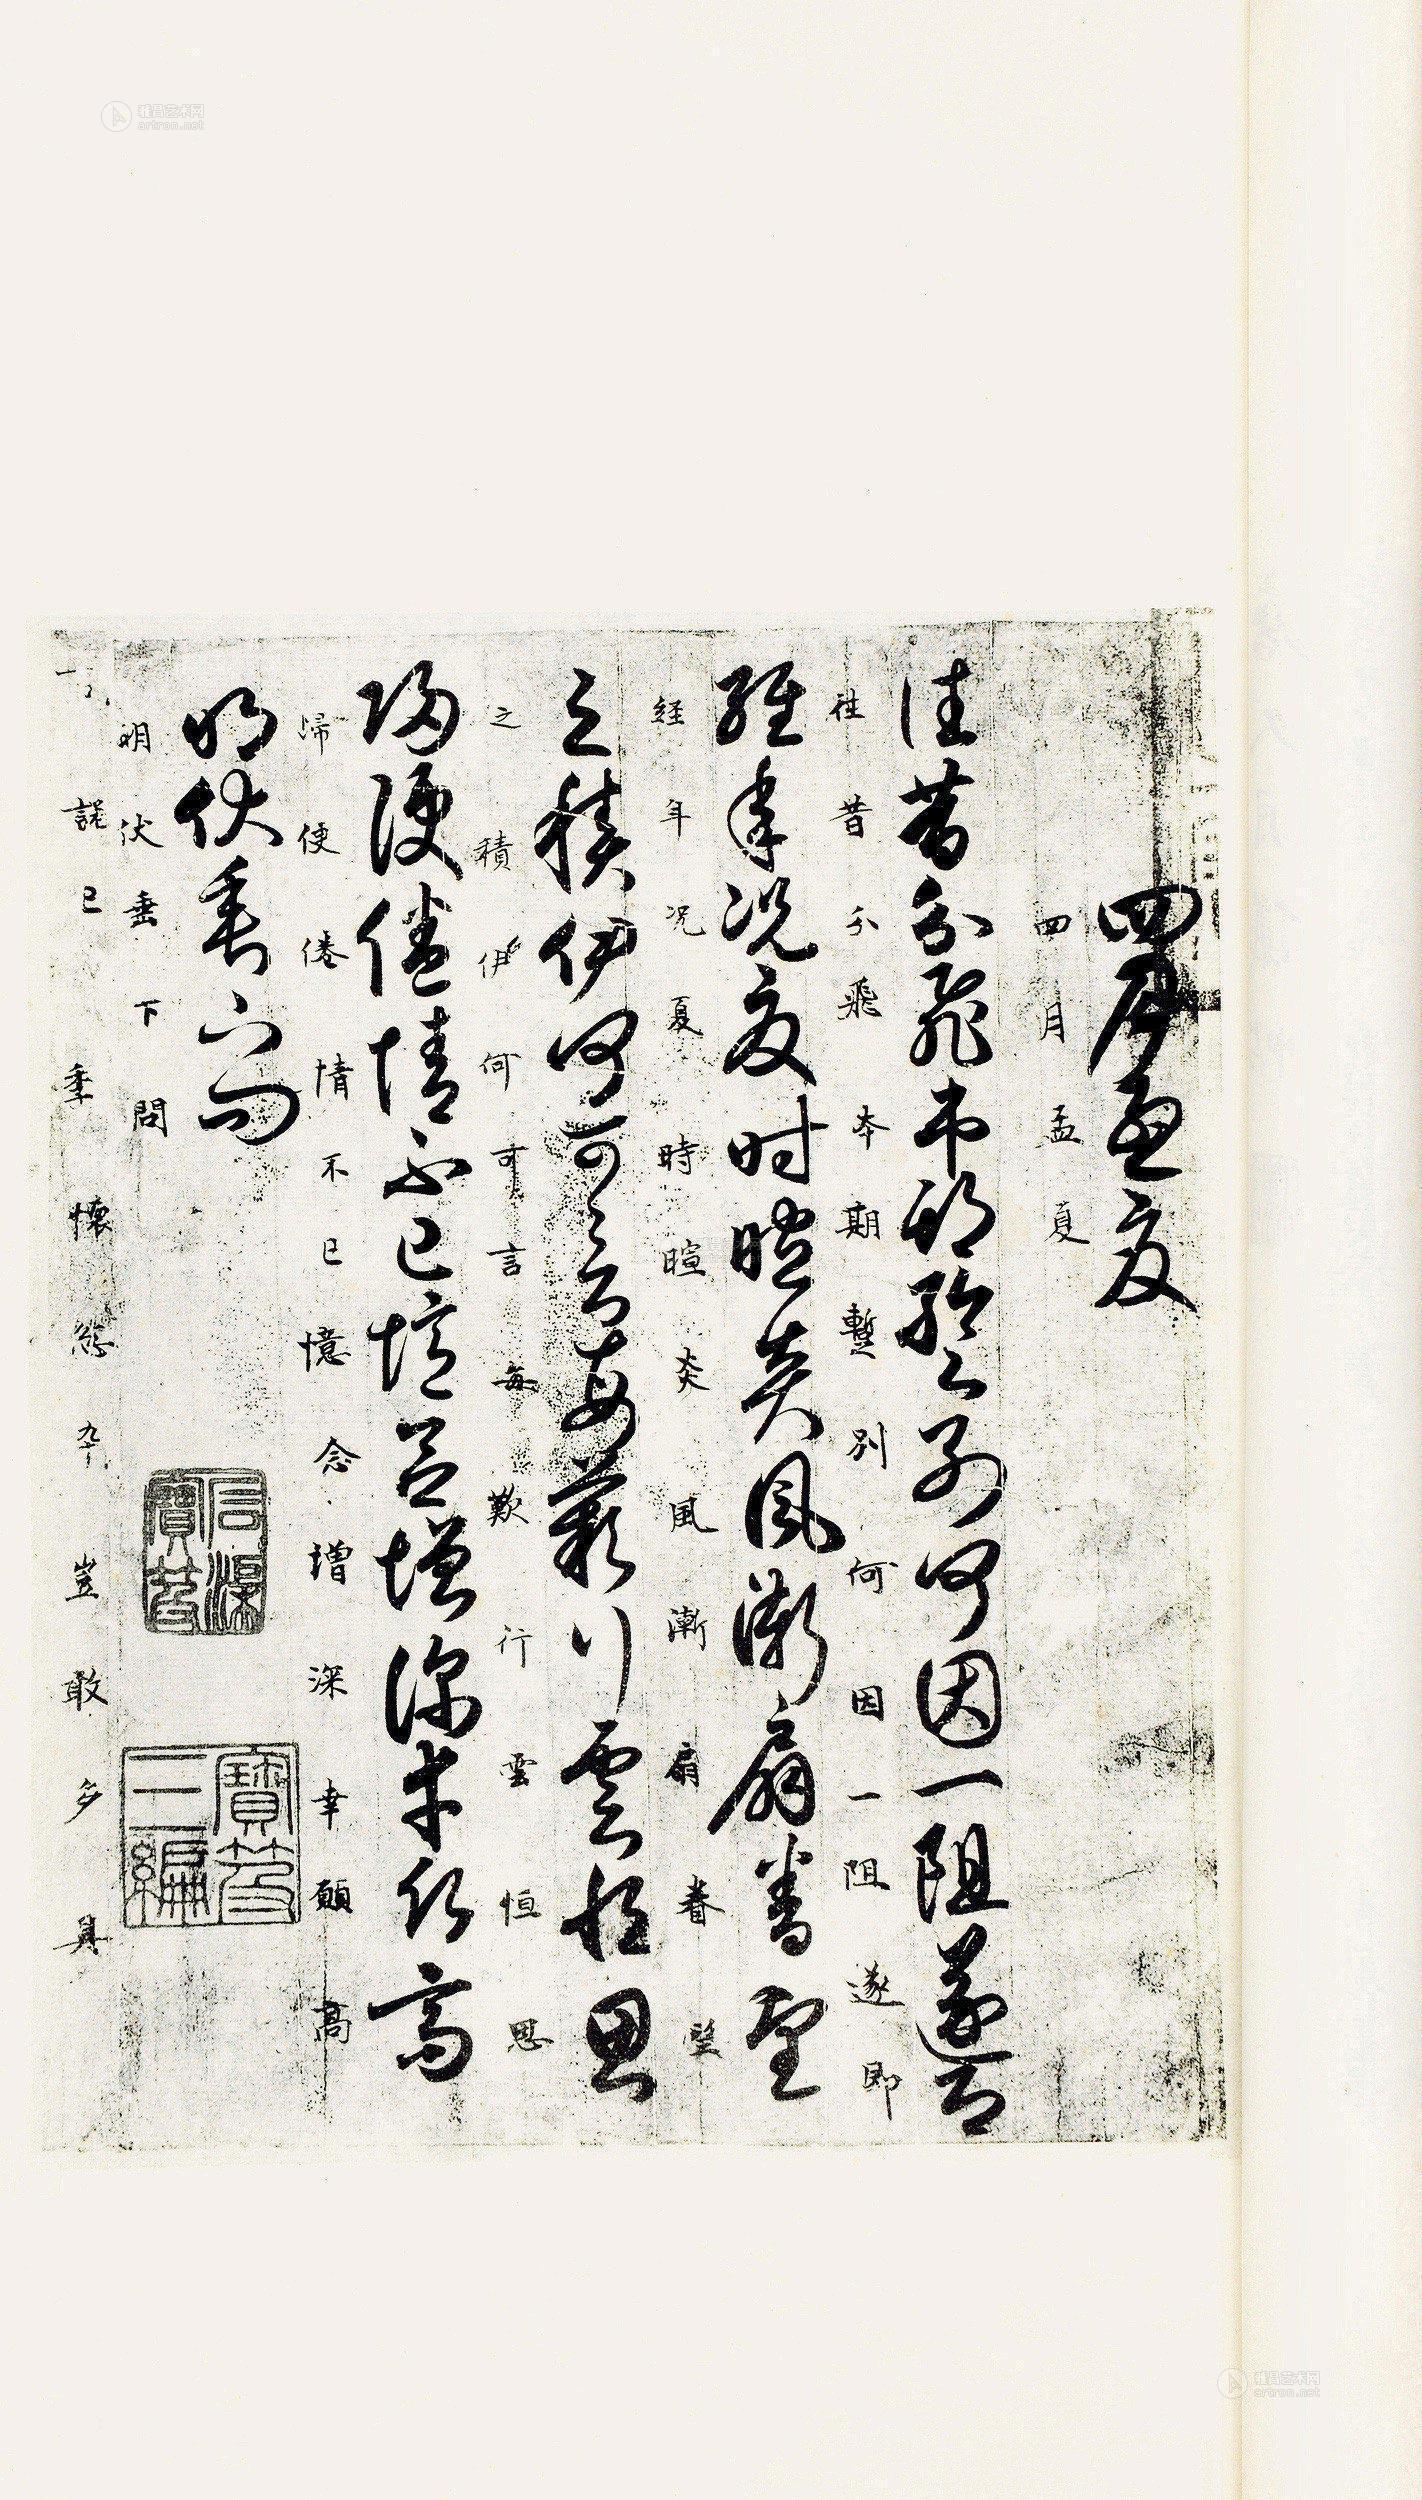 四月孟夏
四月孟夏
往昔分飛本期暫別何因一阻遂即
往昔分飛本期暫別何因一阻遂即
経年況夏時暄炎風漸扇眷望
経年况夏時暄炎風漸扇眷望
之積伊何可言每歎行雲恒思
之積伊何可言每歎行雲恒思
歸便倦情不已憶念增深幸願高
歸便倦情不已憶念增深幸願高
明伏垂下問
明伏垂下問
已垂懷豈敢多具
石渠寶笈
寶笈三編
雅昌艺术网
artron.net
雅昌艺术网
artron.net